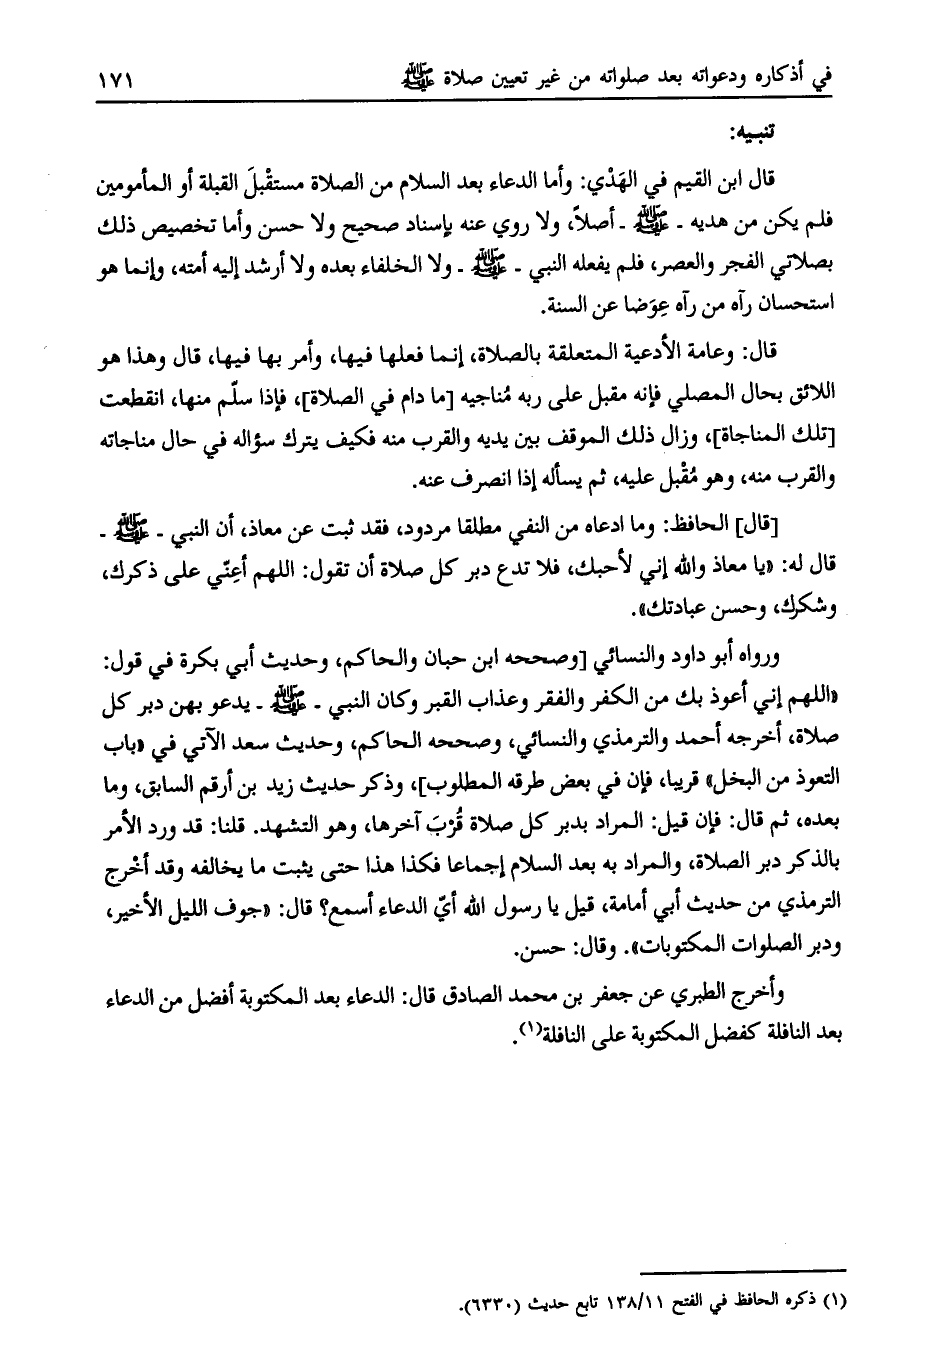 في أذكاره ودعواته بعد صلواته من غير تعيين صلاة ﷺ ١٧١
تنبيه:
قال ابن القيم في الهَدْي: وأما الدعاء بعد السلام من الصلاة مستقْبلَ القبلة أو المأمومين
فلم يكن من هديه - ﷺ - أصلاً، ولا روي عنه بإسناد صحيح ولا حسن وأما تخصيص ذلك
بصلاتي الفجر والعصر، فلم يفعله النبي - ﷺ - ولا الخلفاء بعده ولا أرشد إليه أمته، وإنما هو
استحسان رآه من رآه عِوَضا عن السنة.
قال: وعامة الأدعية المتعلقة بالصلاة، إنما فعلها فيها، وأمر بها فيها، قال وهذا هو
اللائق بحال المصلي فإنه مقبل على ربه مُناجيه [ما دام في الصلاة]، فإذا سلّم منها، انقطعت
[تلك المناجاة]، وزال ذلك الموقف بين يديه والقرب منه فكيف يترك سؤاله في حال مناجاته
والقرب منه، وهو مُقْبل عليه، ثم يسأله إذا انصرف عنه.
[قال] الحافظ: وما ادعاه من النفي مطلقا مردود، فقد ثبت عن معاذ، أن النبي - ﷺ -
قال له: «يا معاذ والله إني لأحبك، فلا تدع دبر كل صلاة أن تقول: اللهم أعِنّي على ذكرك،
وشكرك، وحسن عبادتك».
ورواه أبو داود والنسائي [وصححه ابن حبان والحاكم، وحديث أبي بكرة في قول:
«اللهم إني أعوذ بك من الكفر والفقر وعذاب القبر وكان النبي - ﷺ - يدعو بهن دبر كل
صلاة، أخرجه أحمد والترمذي والنسائي، وصححه الحاكم، وحديث سعد الآتي في «باب
التعوذ من البخل» قريبا، فإن في بعض طرقه المطلوب]، وذكر حديث زيد بن أرقم السابق، وما
بعده، ثم قال: فإن قيل: المراد بدبر كل صلاة قُرْبَ آخرها، وهو التشهد. قلنا: قد ورد الأمر
بالذكر دبر الصلاة، والمراد به بعد السلام إجماعا فكذا هذا حتى يثبت ما يخالفه وقد أخْرج
الترمذي من حديث أبي أمامة، قيل يا رسول الله أيّ الدعاء أسمع؟ قال: «جوف الليل الأخير،
ودبر الصلوات المكتوبات». وقال: حسن.
وأخرج الطبري عن جعفر بن محمد الصادق قال: الدعاء بعد المكتوبة أفضل من الدعاء
بعد النافلة كفضل المكتوبة على النافلة(١).
(١) ذكره الحافظ في الفتح ١٣٨/١١ تابع حديث (٦٣٣٠).